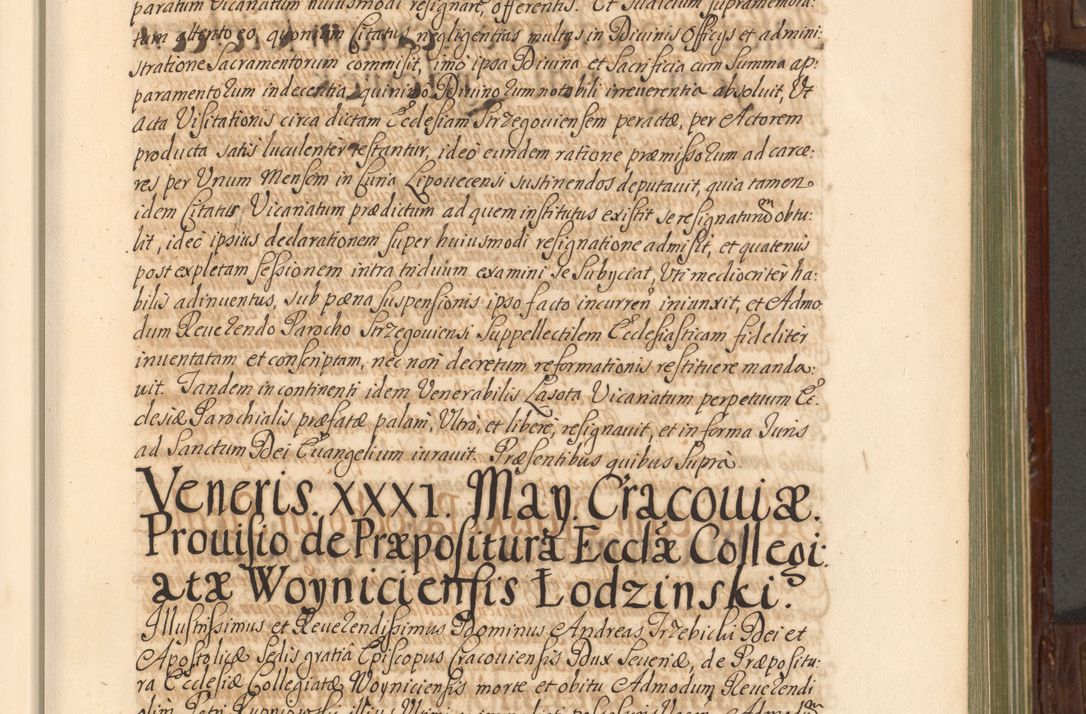 paratum Vicanatum huiusmodi resignare, offerentis. Et Judicium supramemora:
tum attento eo, quoniam Citatus negligentias multas in Divinis Officys et admini:
stratione Sacramentorum commisit, imo ipsa Divina et Sacrificia cum summa ap:
paramentorum indecentia, quinimo Divinorum notabili irreuerentia absoluit, Ut
acta Visitationis circa dictam Ecclesiam Strzegouiensem peractæ, per Actorem
producta satis luculenter testantur, ideo eundem ratione præmissorum ad carce:
res per Unum Mensem in Curia Lipouecensi sustinendos deputauit, quia tamen
idem Citatus Vicanatum prædictum ad quem institutus existit se resignaturũ obtu:
lit, ideo ipsius declarationem super huiusmodi resignatione admisit, et quatenus
post expletam sessionem intra triduum examini se subyciat, Uti mediocriter ha:
bilis adinuentus, sub pæna suspensionis ipso facto incurreñ iniunxit, et Admo
dum Reuerendo Parocho Strzegouiensi Suppellectilem Ecclesiasticam fideliter
inuentatam et conscriptam, nec non decretum reformationis restituere manda:
uit. Tandem in continenti idem Venerabilis Lasota Vicanatum perpetuum Ec:
clesiæ Parochialis præfatæ palam, Ultro, et libere, resignauit, et in forma Juris
ad Sanctum Dei Euangelium iurauit. Præsentibus quibus supra.
Veneris. XXXI. May. Cracouiæ.
Prouisio de Præpositura Ecclæ Collegi:
atæ Woyniciensis Łodzinski.
Illustrissimus et Reuerendissimus Dominus Andreas Trzebicki Dei et
Apostolicæ Sedis gratia Episcopus Cracouiensis Dux Seueriæ, de Præpositu:
ra Ecclesiæ Collegiatæ Woyniciensis morte et obitu Admodum Reuerendi
olim Petri